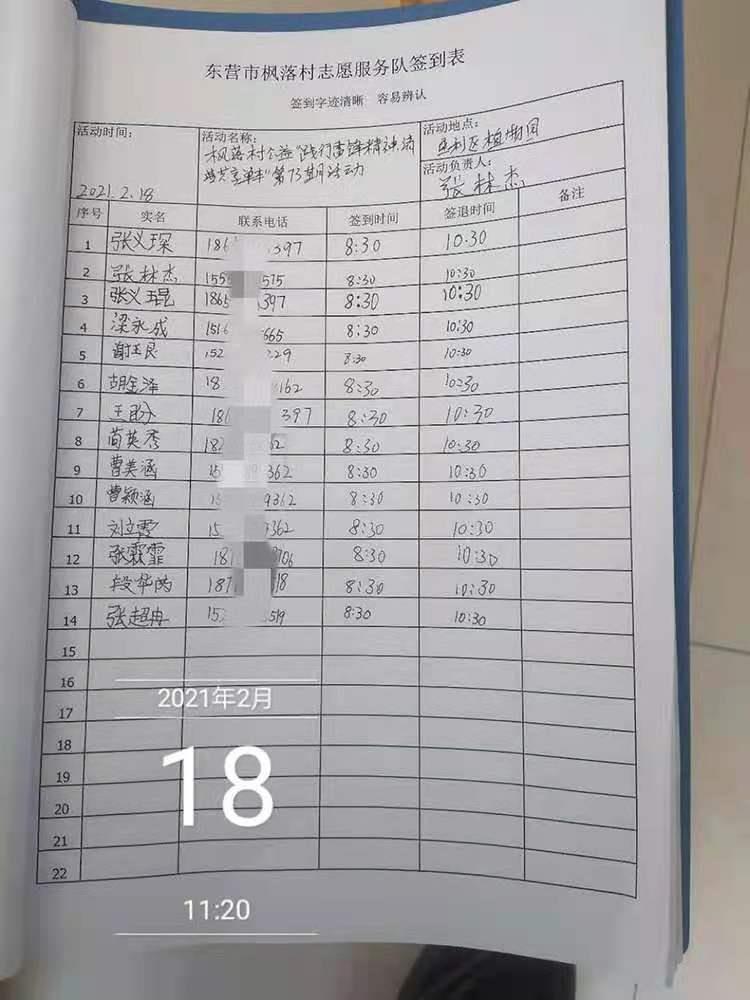 东营市枫落村志愿服务队签到表
签到字迹清晰 容易辨认
活动时间: 2021.2.18
活动名称: 枫落村公益"践行雷锋精神,清
共享单车"第73期活动
活动地点: 垦利区植物园
活动负责人: 张林杰
序号 实名 联系电话 签到时间 签退时间 备注
1 张义琛 186 397 8:30 10:30
2 张林杰 155 575 8:30 10:30
3 张义琨 1865 397 8:30 10:30
4 梁永成 1516 665 8:30 10:30
5 谢玉良 152 229 8:30 10:30
6 胡金泽 18 162 8:30 10:30
7 王盼 186 397 8:30 10:30
8 苘英秀 182 62 8:30 10:30
9 曹美涵 15 362 8:30 10:30
10 曹颖涵 15 9362 8:30 10:30
11 刘立雪 15 362 8:30 10:30
12 张霖霏 181 706 8:30 10:30
13 段华 187 18 8:30 10:30
14 张超冉 152 519 8:30 10:30
15
16
17
18
19
20
21
22
2021年2月
18
11:20